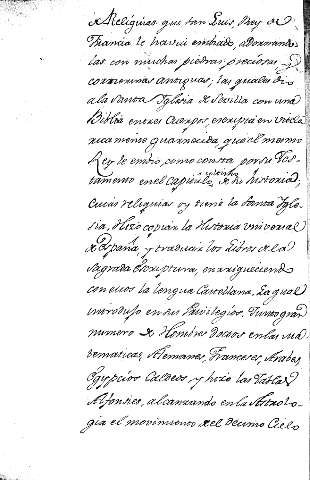 de Reliquias que San Luis, Rey de
Francia le havia embiado, adornando
las con muchas piedras preciosas, y
cornerinas antiguas, las quales dio
a la Santa Iglesia de Sevilla con una
Biblia en tres Cuerpos, escripta en vitela
ricamente guarnecida, que el mismo
Rey le embio, como consta por su Tes-
tamento en el capitulo de su historia,
cuias reliquias oy tiene la Santa Igle-
sia, Hizo copiar la Historia universal
de España, y traducir los Libros de la
Sagrada Escriptura, enriqueciendo
con ellos la lengua Castellana, La qual
introdujo en sus Privilegios. Junto gran
numero de Hombres doctos en las Ma
tematicas, Alemanes, Franceses, Arabes
Egypcios Caldeos, y hizo las Tablas
Alfonsies, alcanzando en la Astrolo-
gia el movimiento del Decimo Cielo